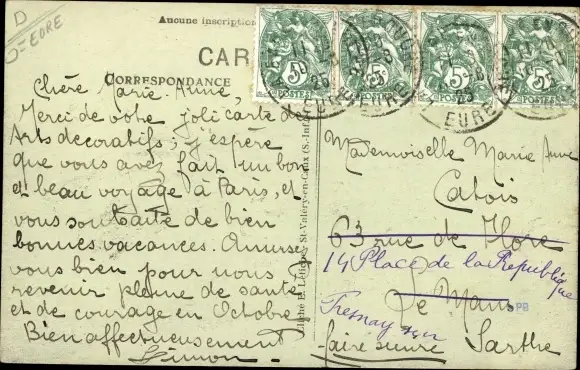 D
= EORE
Aucune inscription
CAR
CORRESPONDANCE
Chère Marie-Anne,
Merci de votre joli carte des
Arts décoratifs; j'espère
que vous avez fait un bon
et beau voyage à Paris, et
vous souhaite de bien
bonnes vacances. Amusez
vous bien pour nous
revenir pleine de santé
et de courage en Octobre
Bien affectueusement
Simon
Cliché E. Lefigney St-Valery-en-Caux (S.-Inf.)
5c
5c
5c
5c
POSTES
POSTES
POSTES
POSTES
EURE
EURE
Mademoiselle Marie Anne
Catois
63 rue de Flore
14 Place de la République
Le Mans
Fresnay sur
Faire suivre Sarthe